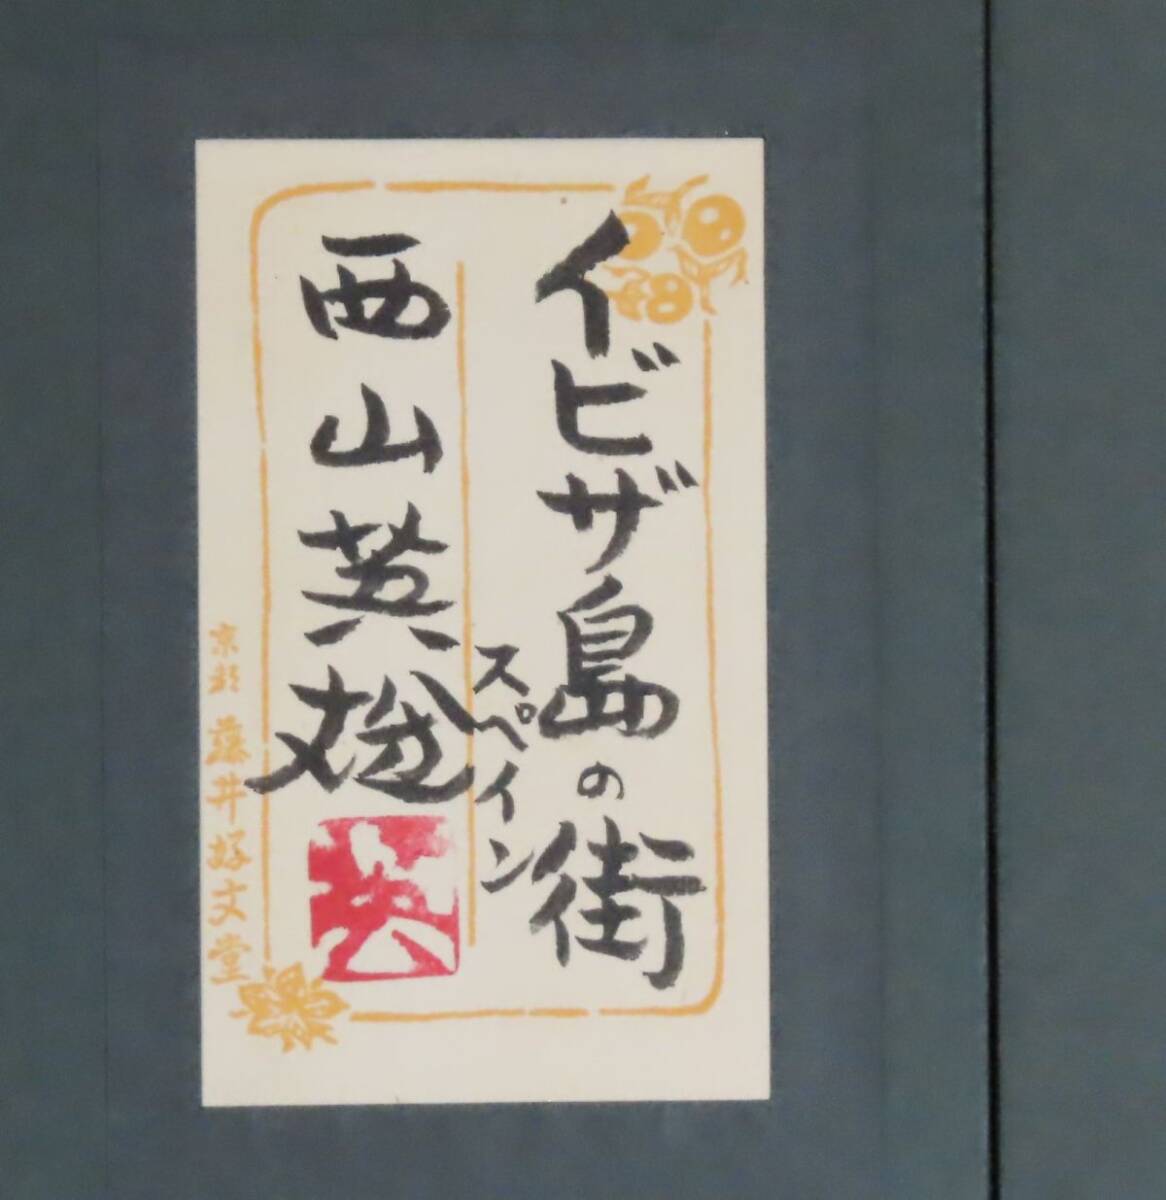 イビザ島の街
スペイン
西山英雄
京都 藤井好文堂
英